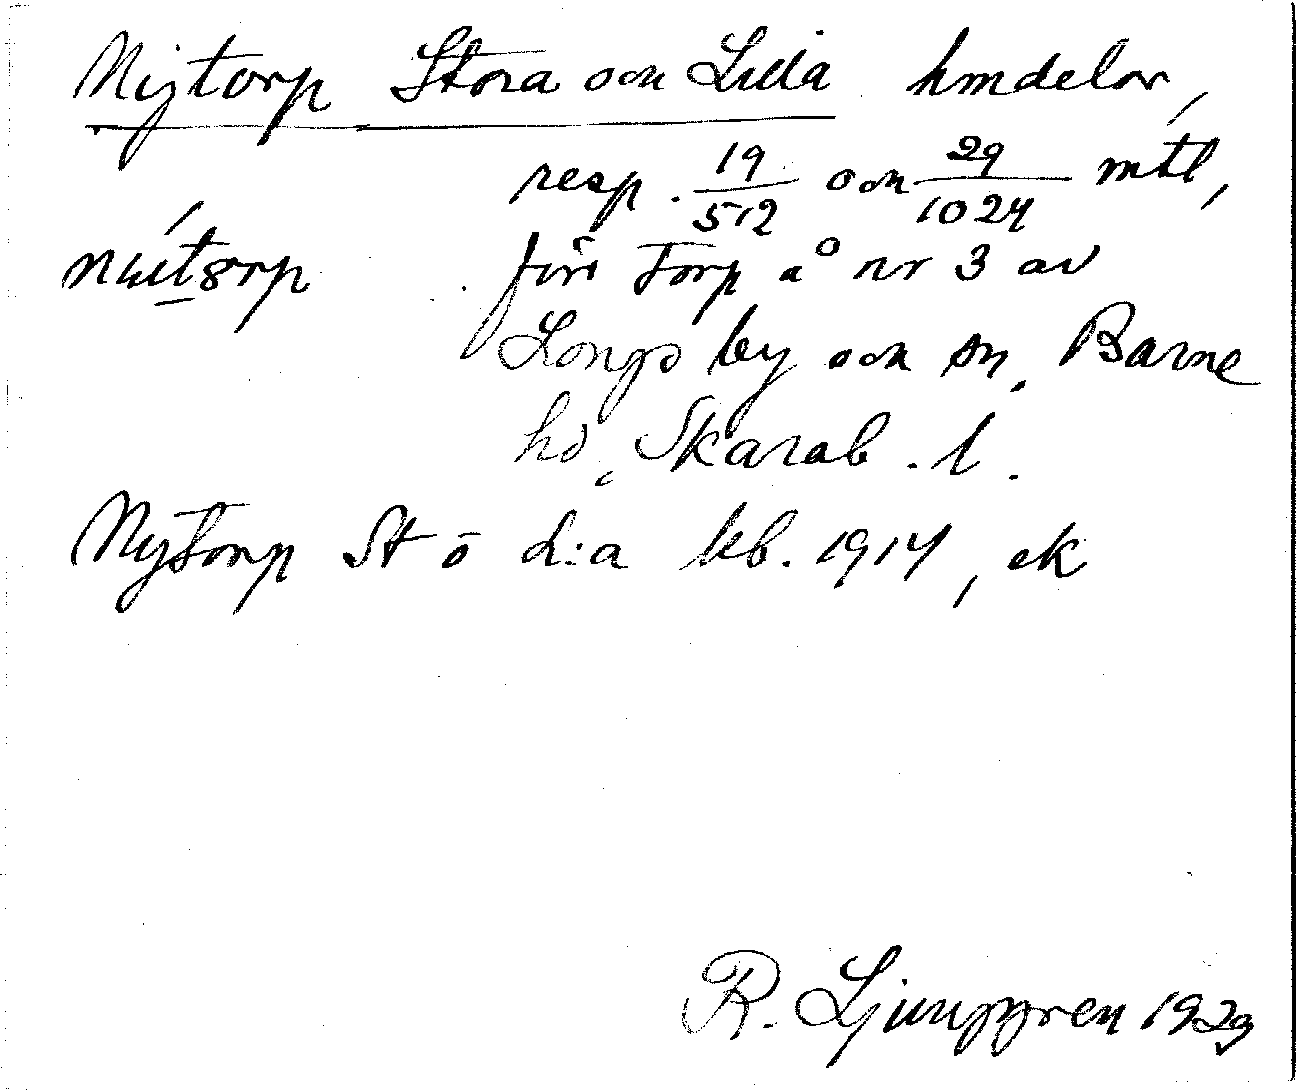 Nytorp Stora och Lilla hmdelar,
resp. 19/512 och 29/1024 mtl,
jör Torp å nr 3 av
Longs by och sn, Barne
hd, Skarab. l.
Nytorp St o L:a kb. 1914, ek
R. Ljunggren 1929